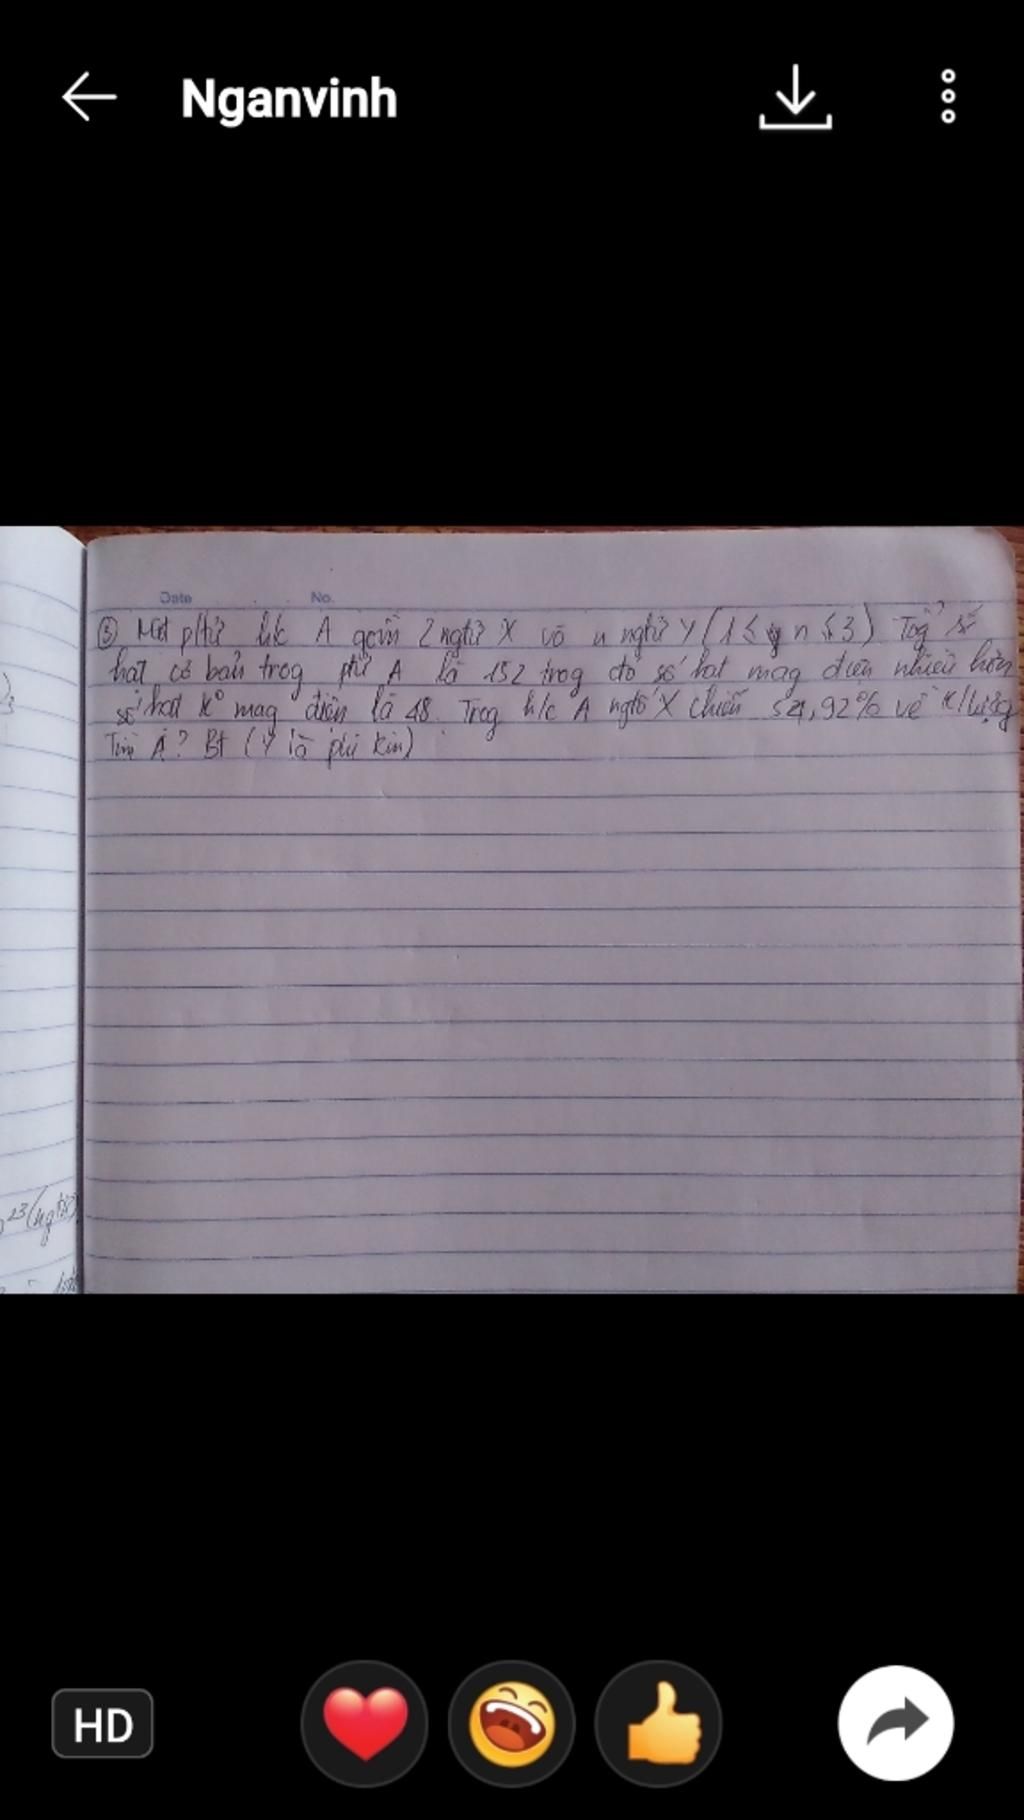 Nganvinh
Date No.
③ Một ptử h/c A gồm 2 ngtử X và n ngtử Y (1 ≤ n ≤ 3) Tog̉ số
hạt cơ bản trog ptử A là 152 trog đó số hạt mag điện nhiều hơn
số hạt k⁰ mag điện là 48. Trog h/c A ngtố X chiếm 54,92% về k/lượng
Tìm A? Bt (Y là phi kim)
23 (ngtử)
HD